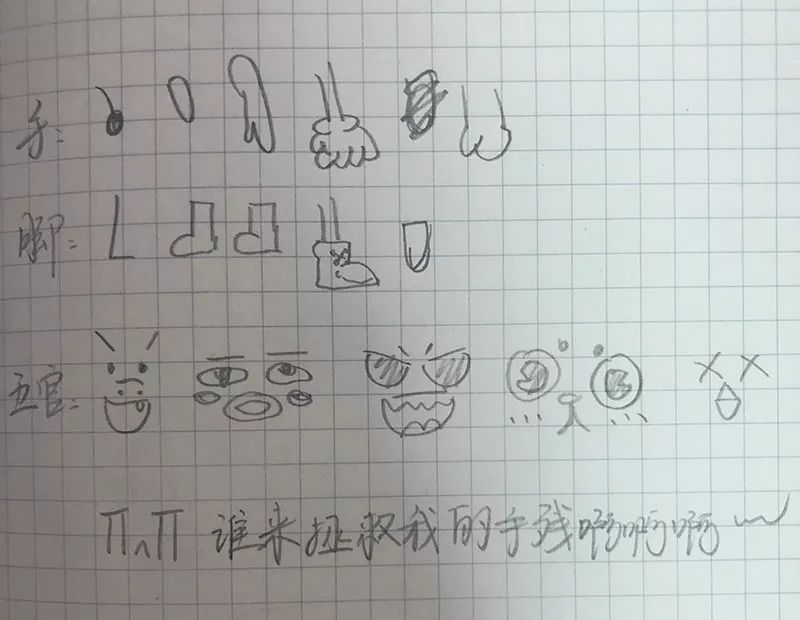 手:
脚:
五官:
π^π 谁来拯救我的手残啊啊啊~